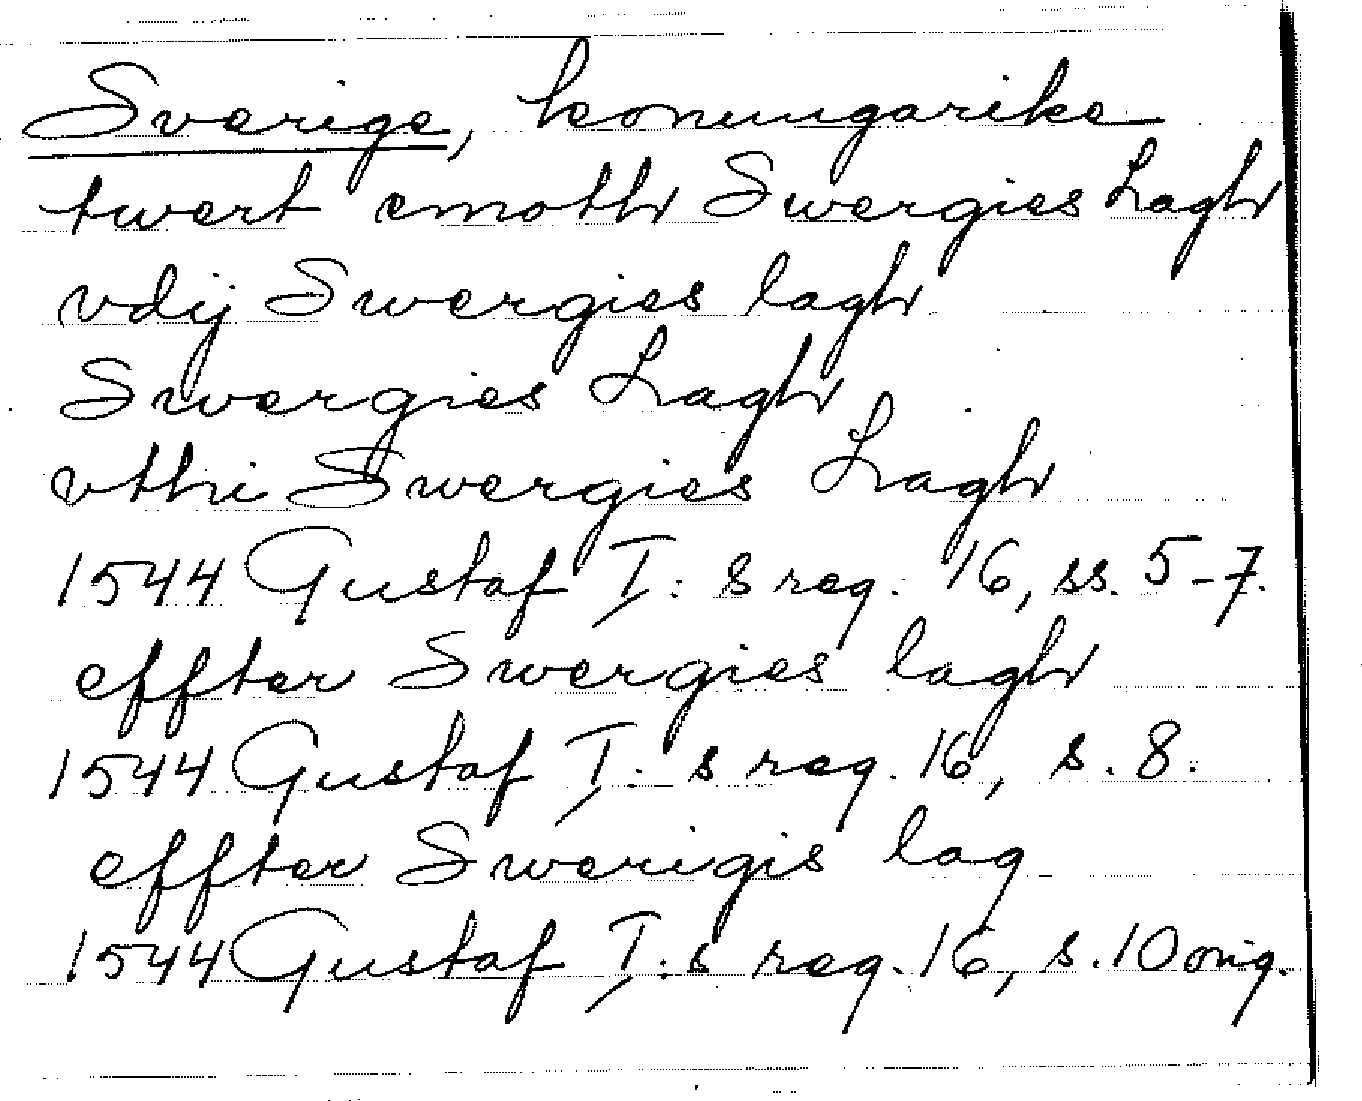 Sverige, konungarike
twert emoth Swergies Lagh
vdij Swergies lagh
Swergies Lagh
vthi Swergies Lagh
1544 Gustaf I:s reg. 16, ss. 5-7.
effter Swergies lagh
1544 Gustaf I:s reg. 16, s. 8.
effter Swerigis lag
1544 Gustaf I:s reg. 16, s. 10 orig.